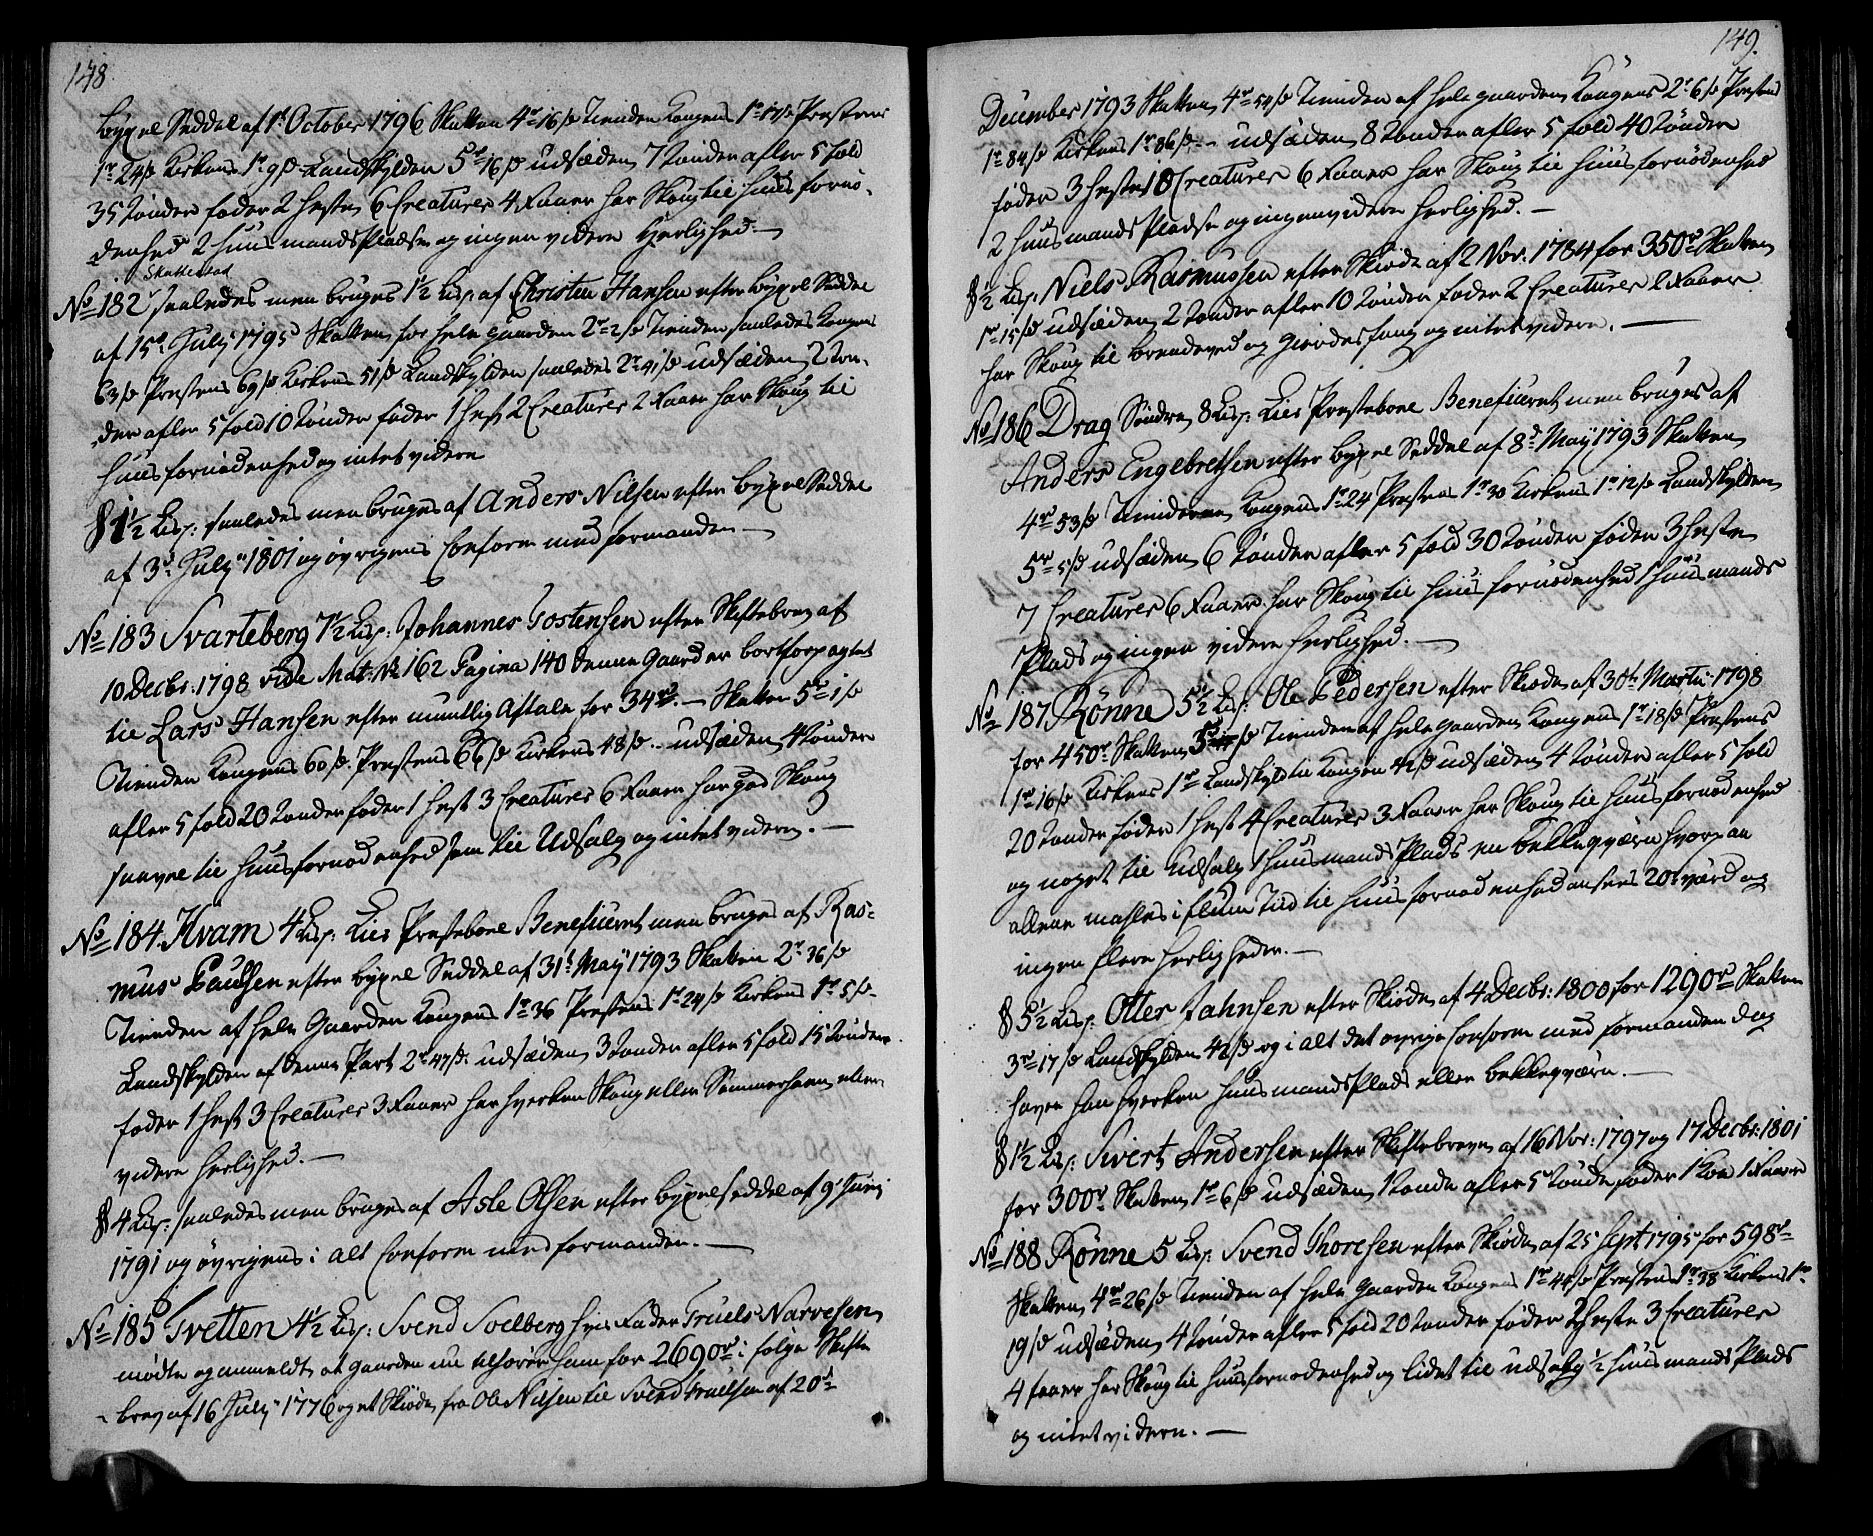 148
bÿxel Seddel af 1t October 1796 Skatten 4r=16s Tienden Kongens 1r=17s Prestens
1r=24s Kirkens 1r 9s Landskÿlden 5r=16s udsæden 7 tønder afler 5 fold
35 tønder føder 2 Heste 6 Creaturer 4 Faaer har Skoug til huus fornø-
denhed 2 huusmands Pladse og ingen videre Herlighed. —
Skattestad
No 182 saaledes men bruges 1½ Lisp: af Christen Hansen efter bÿxel Seddel
af 15de Julÿ 1795 Skatten for hele gaarden 2r=2s Tienden saaledes Kongens
63s Prestens 69s Kirkens 51s Landskÿlden saaledes 2r 41s udsæden 2 tøn-
der afler 5 fold 10 tønder føder 1 Hest 2 Creaturer 2 Faaer har Skoug til
huus fornødenhed og intet videre
§ 1½ Lisp: saaledes men bruges af Anders Nilsen efter bÿxel Seddel
af 3de Julÿ 1801 og øvrigens Conform med formanden —
No 183 Svarteberg 7½ Lisp: Johannes Tostensen efter Skiftebrev af
10 Decbr: 1798 vide Mat: No 162 Pagina 140 denne Gaard er bortforpagtet
til Lars Hansen efter mundtlig Aftale for 34rd. — Skatten 5r=1s
Tienden Kongens 60s Prestens 66s Kirkens 48s - udsæden 4 tønder
afler 5 fold 20 tønder føder 1 Hest 3 Creaturer 6 Faaer har god Skoug
saavel til huus fornødenhed som til Udsalg og intet videre. —
No 184 Kvam 4 Lisp: Lier Prestebole Beneficeret men bruges af Ras-
mus Paulsen efter bÿxel Seddel af 31t Maÿ 1793 Skatten 2r 36s
Tienden af hele Gaarden Kongens 1r 36 Prestens 1r 24s Kirkens 1r 5s -
Landskÿlden af denne Part 2r 47s. udsæden 3 tønder afler 5 fold 15 tønder
føder 1 Hest 3 Creaturer 3 Faaer har hverken Skoug eller Sommerhavn eller
videre herlighed. —
§ 4 Lisp: saaledes men bruges af Asle Olsen efter bÿxelseddel af 9t Junj
1791 og øvrigens i alt Conform med formanden. —
No 185 Tvetten 4½ Lisp: Svend Soelberg hvis Fader Truels Narvesen
mødte og anmeldte at gaarden nu tilhører ham for 2690rd i følge Skifte
brev af 16 Julÿ 1776 og et Skiøde fra Ole Nilsen til Svend Truelsen af 20de
149.
December 1793 Skatten 4r 54s Tienden af hele gaarden Kongens 2r 6s Prestens
1r 84s Kirkens 1r 86s - udsæden 8 tønder afler 5 fold 40 tønder
føder 3 Heste 10 Creaturer 6 Faaer har Skoug til huus fornødenhed
2 huusmands Pladse og ingen videre herlighed. —
§ ½ Lisp: Niels Rasmussen efter Skiøde af 2 Nov: 1784 for 350rd Skatten
1r 15s udsæden 2 tønder afler 10 tønder føder 2 Creaturer 2 Faaer
har Skoug til brendeved og Giærdesfang og intet videre. —
No 186 Drag Søndre 8 Lisp: Lier Prestebole Beneficeret men bruges af
Anders Engebretsen efter bÿxel Seddel af 8de Maÿ 1793 Skatten
4r 53s Tienderne Kongens 1r 24 Prestens 1r 30 Kirkens 1r 12s Landskÿlden
5r=5s udsæden 6 tønder afler 5 fold 30 tønder føder 3 Heste
7 Creaturer 6 Faaer har Skoug til huus fornødenhed 1 huusmands
Plads og ingen videre herlighed. —
No 187 Rønne 5½ Lisp: Ole Pedersen efter Skiøde af 30t Martii 1798
for 450rd Skatten Tienden af hele gaarden Kongens 1r 18s Prestens
1r 16s Kirkens 1r= Landskÿld til Kongen 42s udsæden 4 tønder afler 5 fold
20 tønder føder 1 Hest 4 Creaturer 3 Faaer har Skoug til huus fornødenhed
og noget til Udsalg 1 huusmands Plads en bekkeqværn hvorpaa
allene mahles i flum Tiid til huus fornødenhed ansees 20rd værd og
ingen flere herligheder. —
§ 5½ Lisp: Otter Jahnsen efter Skiøde af 4 Decbr: 1800 for 1290rd Skatten
3r=17s Landskÿlden 42s og i alt det øvrige Conform med formanden dog
haver han hverken huusmands Plads eller bekkeqværn. —
§ 1½ Lisp: Sivert Andersen efter Skiftebreve af 16 Nov: 1797 og 17 Decbr: 1801
for 300rd Skatten 1r=6s udsæden 1 tønde afler 5 tønder føder 1 Koe 1 Faaer
No 188 Rønne 5 Lisp: Svend Thoresen efter Skiøde af 25 Sept 1795 for 598rd
Skatten 4r 26s Tienden af hele Gaarden Kongens 1r 44s Prestens 1r 38 Kirkens 1r
19s udsæden 4 tønder afler 5 fold 20 tønder føder 2 Heste 3 Creaturer
4 faaer har Skoug til huus fornødenhed og lidet til udsalg ½ huusmands Plads
og intet videre. —